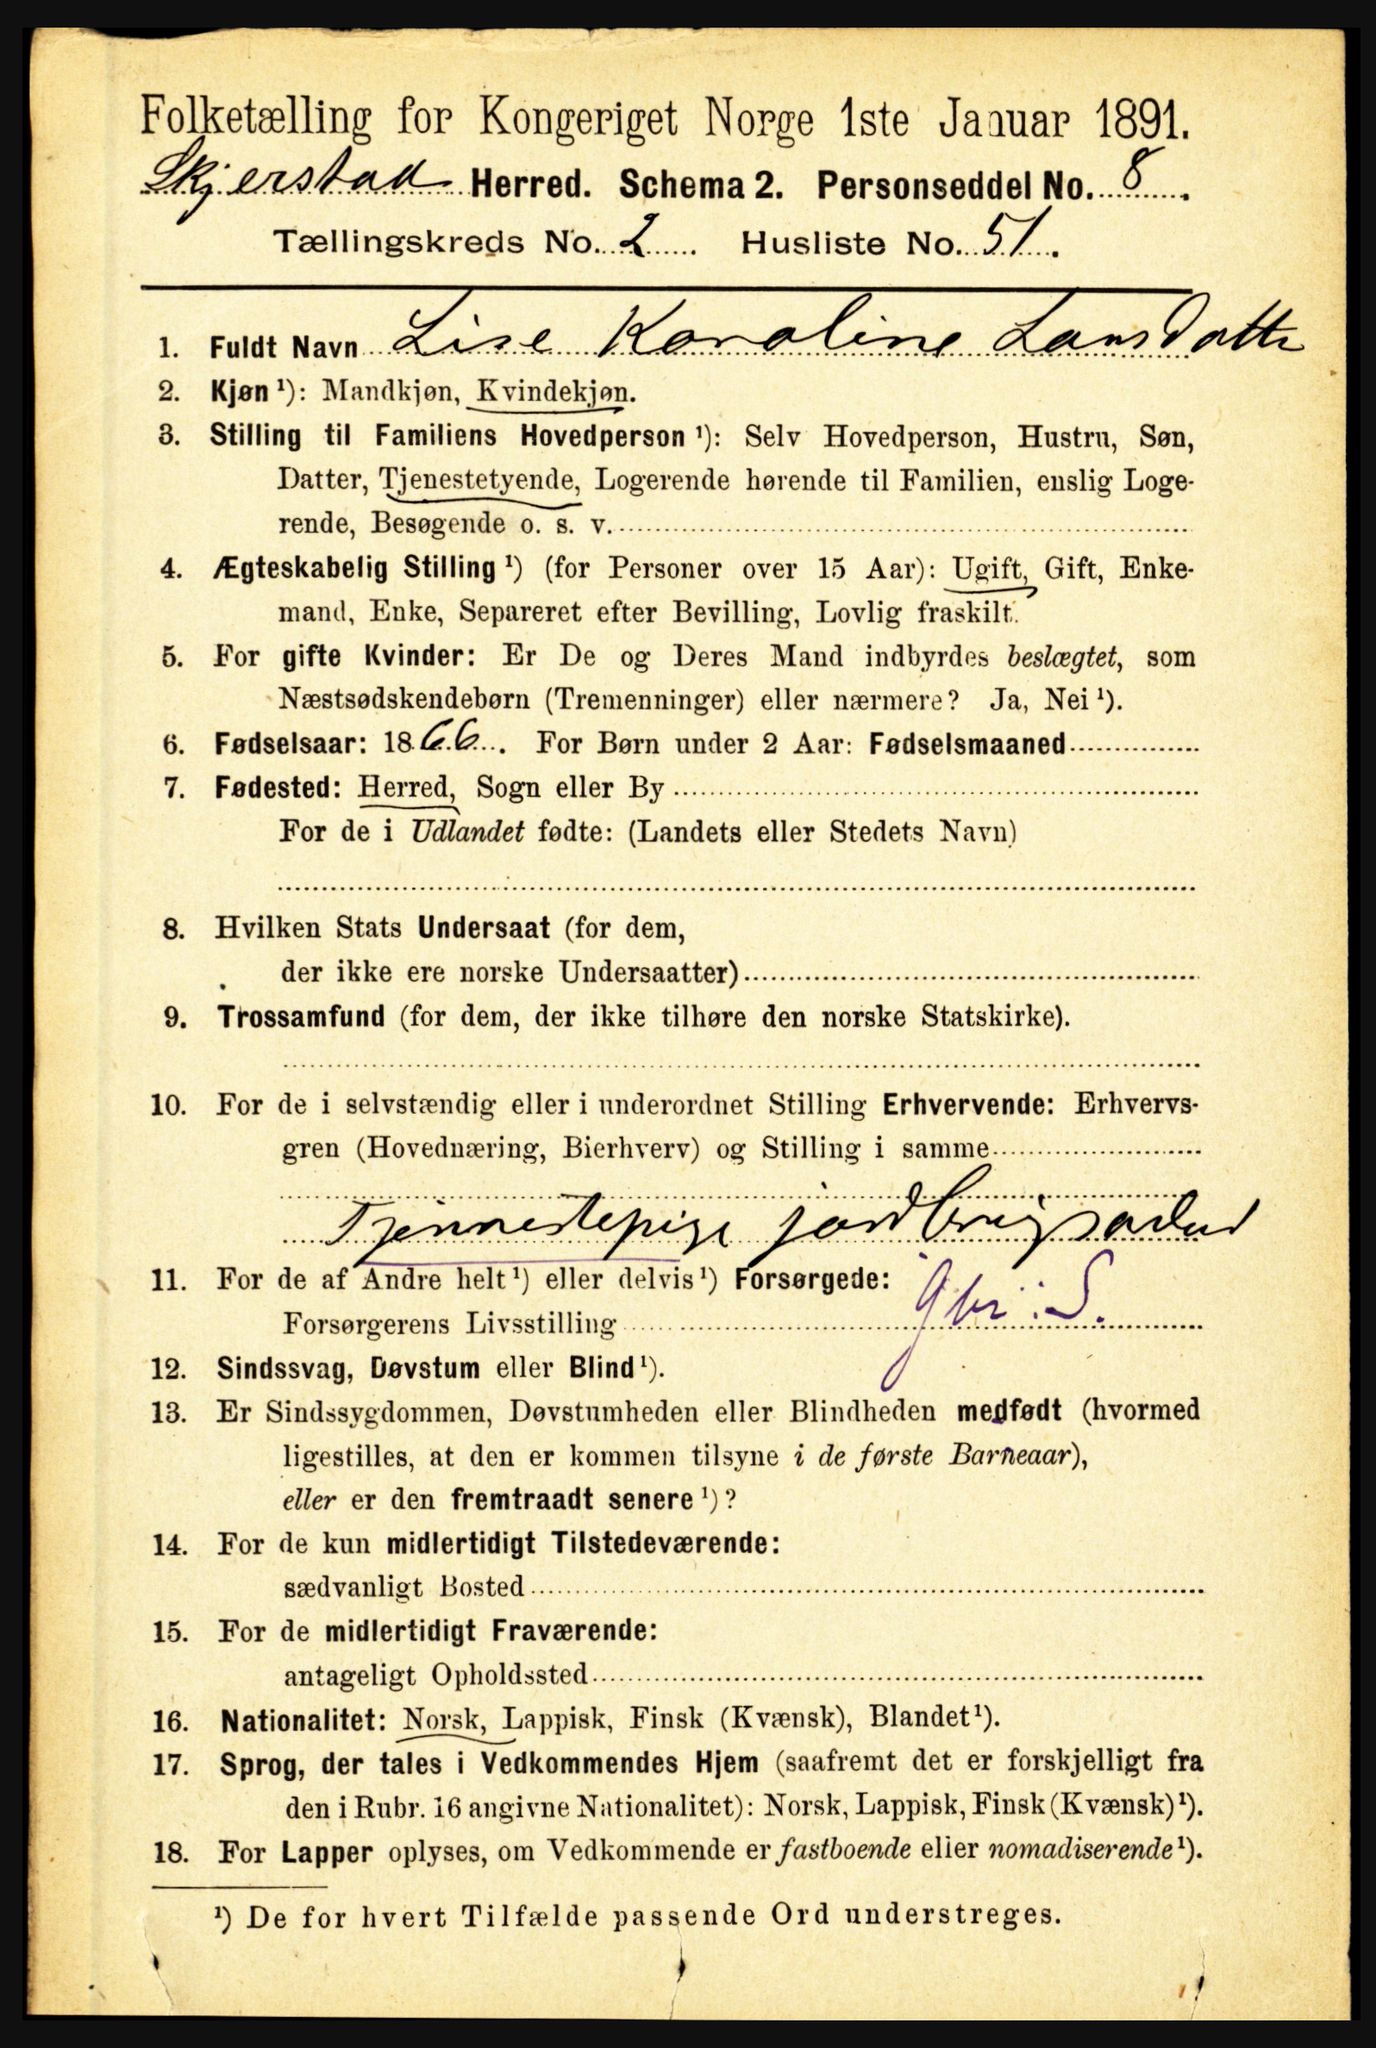 Folketælling for Kongeriget Norge 1ste Januar 1891.
Skjerstad Herred. Schema 2. Personseddel No. 8.
Tællingskreds No. 2 Husliste No. 51.
1. Fuldt Navn Lise Karoline Larsdatter
2. Kjøn ¹): Mandkjøn, Kvindekjøn.
3. Stilling til Familiens Hovedperson ¹): Selv Hovedperson, Hustru, Søn,
Datter, Tjenestetyende, Logerende hørende til Familien, enslig Loge-
rende, Besøgende o. s. v.
4. Ægteskabelig Stilling ¹) (for Personer over 15 Aar): Ugift, Gift, Enke-
mand, Enke, Separeret efter Bevilling, Lovlig fraskilt.
5. For gifte Kvinder: Er De og Deres Mand indbyrdes beslægtet, som
Næstsødskendebørn (Tremenninger) eller nærmere? Ja, Nei ¹).
6. Fødselsaar: 1866. For Børn under 2 Aar: Fødselsmaaned
7. Fødested: Herred, Sogn eller By
For de i Udlandet fødte: (Landets eller Stedets Navn)
8. Hvilken Stats Undersaat (for dem,
der ikke ere norske Undersaatter)
9. Trossamfund (for dem, der ikke tilhøre den norske Statskirke).
10. For de i selvstændig eller i underordnet Stilling Erhvervende: Erhvervs-
gren (Hovednæring, Bierhverv) og Stilling i samme
Tjennestepige
11. For de af Andre helt ¹) eller delvis ¹) Forsørgede:
Forsørgerens Livsstilling
12. Sindssvag, Døvstum eller Blind ¹).
13. Er Sindssygdommen, Døvstumheden eller Blindheden medfødt (hvormed
ligestilles, at den er kommen tilsyne i de første Barneaar),
eller er den fremtraadt senere ¹)?
14. For de kun midlertidigt Tilstedeværende:
sædvanligt Bosted
15. For de midlertidigt Fraværende:
antageligt Opholdssted
16. Nationalitet: Norsk, Lappisk, Finsk (Kvænsk), Blandet ¹).
17. Sprog, der tales i Vedkommendes Hjem (saafremt det er forskjelligt fra
den i Rubr. 16 angivne Nationalitet): Norsk, Lappisk, Finsk (Kvænsk) ¹).
18. For Lapper oplyses, om Vedkommende er fastboende eller nomadiserende ¹).
¹) De for hvert Tilfælde passende Ord understreges.